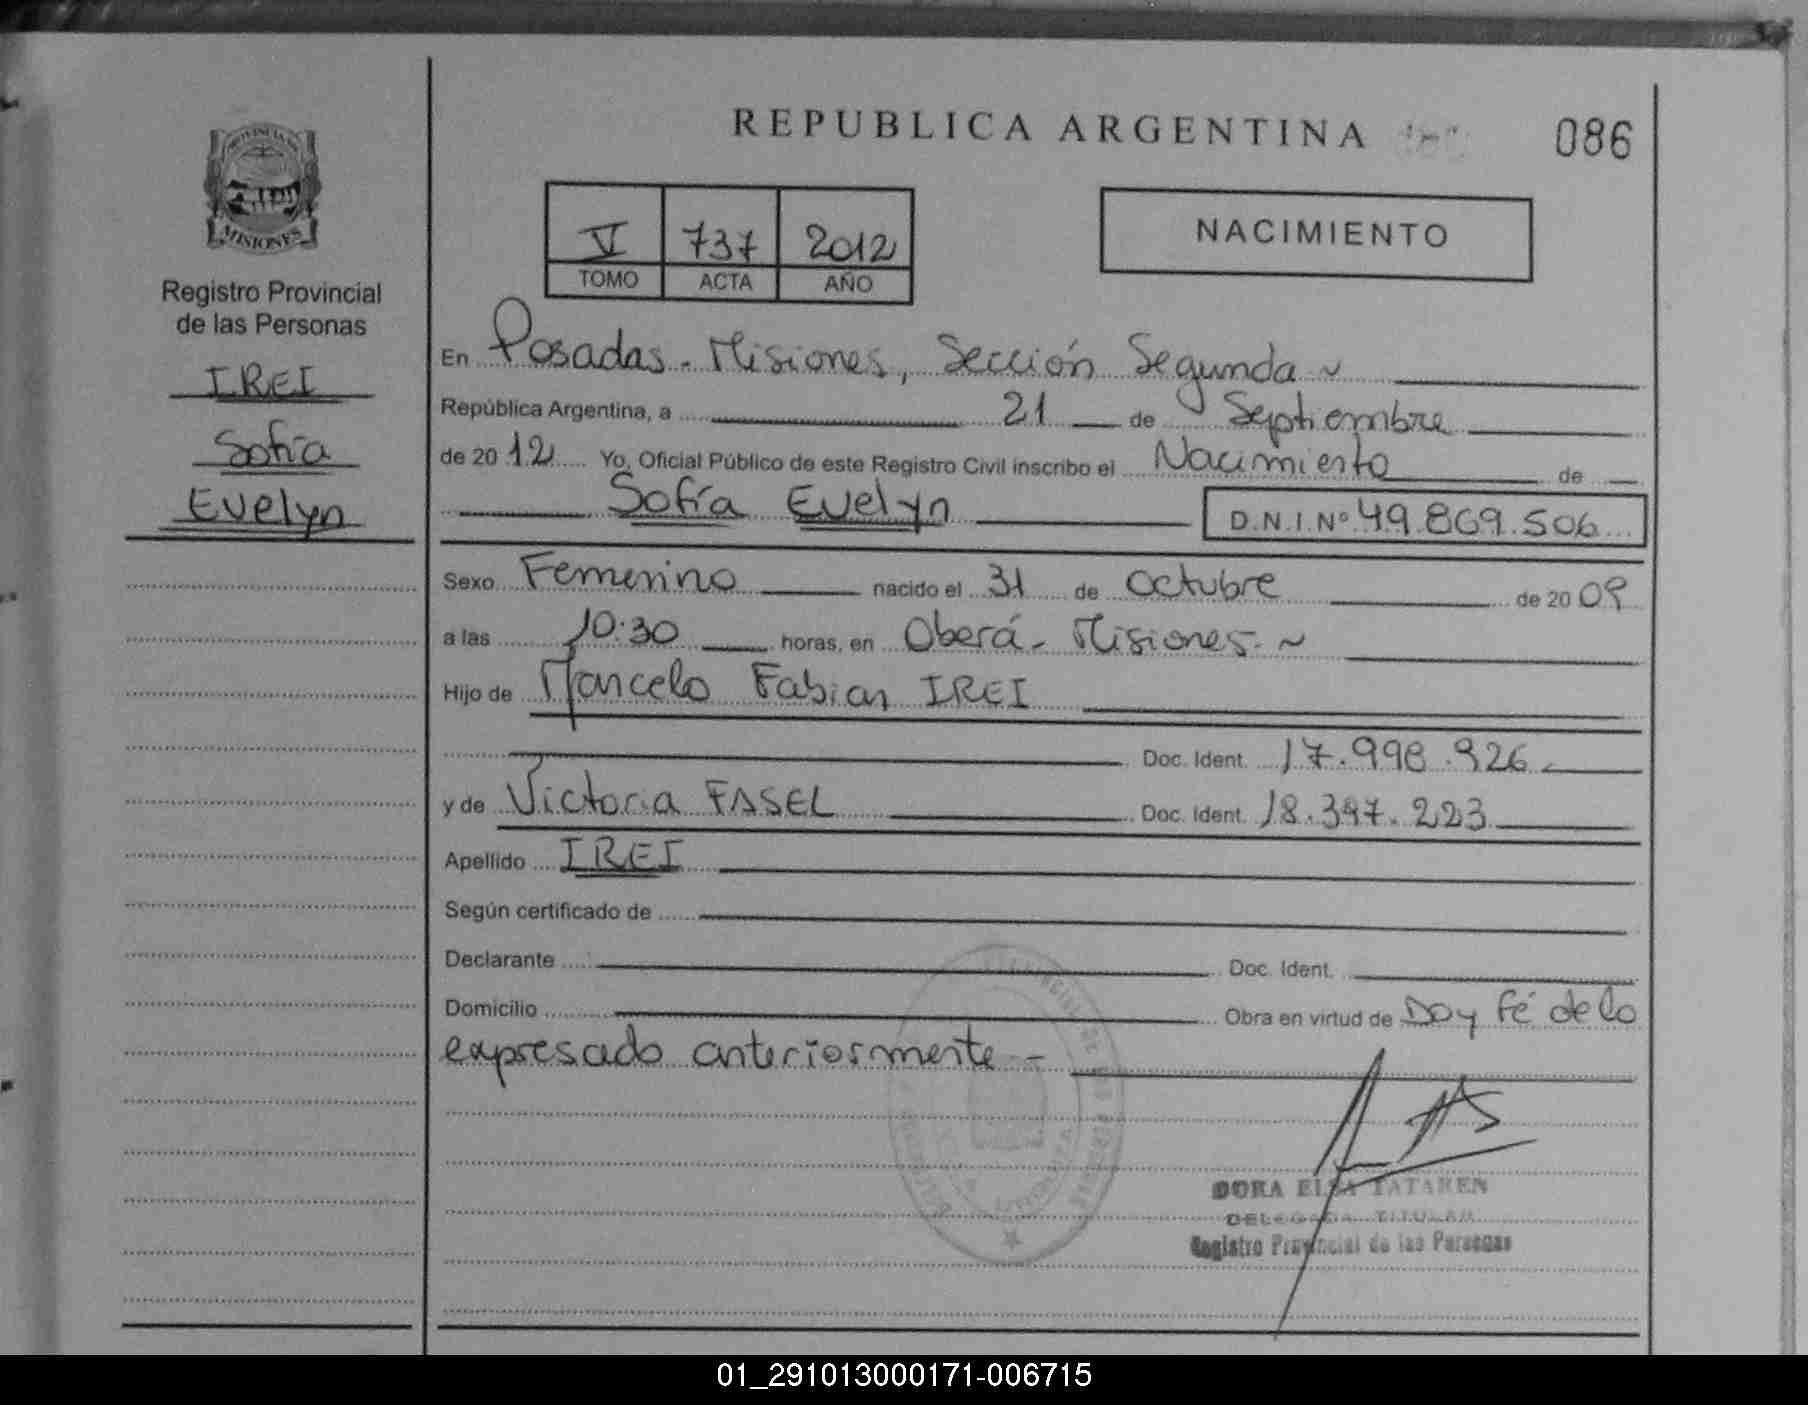 REPUBLICA ARGENTINA
086
PROVINCIA DE
MISIONES
Registro Provincial
de las Personas
IREI
Sofía
Evelyn
V 737 2012
TOMO ACTA AÑO
NACIMIENTO
En Posadas - Misiones, Sección Segunda ~
República Argentina, a 21 de Septiembre
de 2012 Yo, Oficial Público de este Registro Civil inscribo el Nacimiento de
Sofía Evelyn D.N.I.Nº 49.869.506
Sexo Femenino nacido el 31 de Octubre de 2009
a las 10:30 horas, en Oberá - Misiones - ~
Hijo de Marcelo Fabian IREI
Doc. Ident. 17.998.926
y de Victoria FASEL Doc. Ident. 18.397.223
Apellido IREI
Según certificado de
Declarante Doc. Ident.
Domicilio Obra en virtud de Doy Fé de lo
expresado anteriormente -
DORA ELSA TATAREN
DELEGADA TITULAR
Registro Provincial de las Personas
01_291013000171-006715